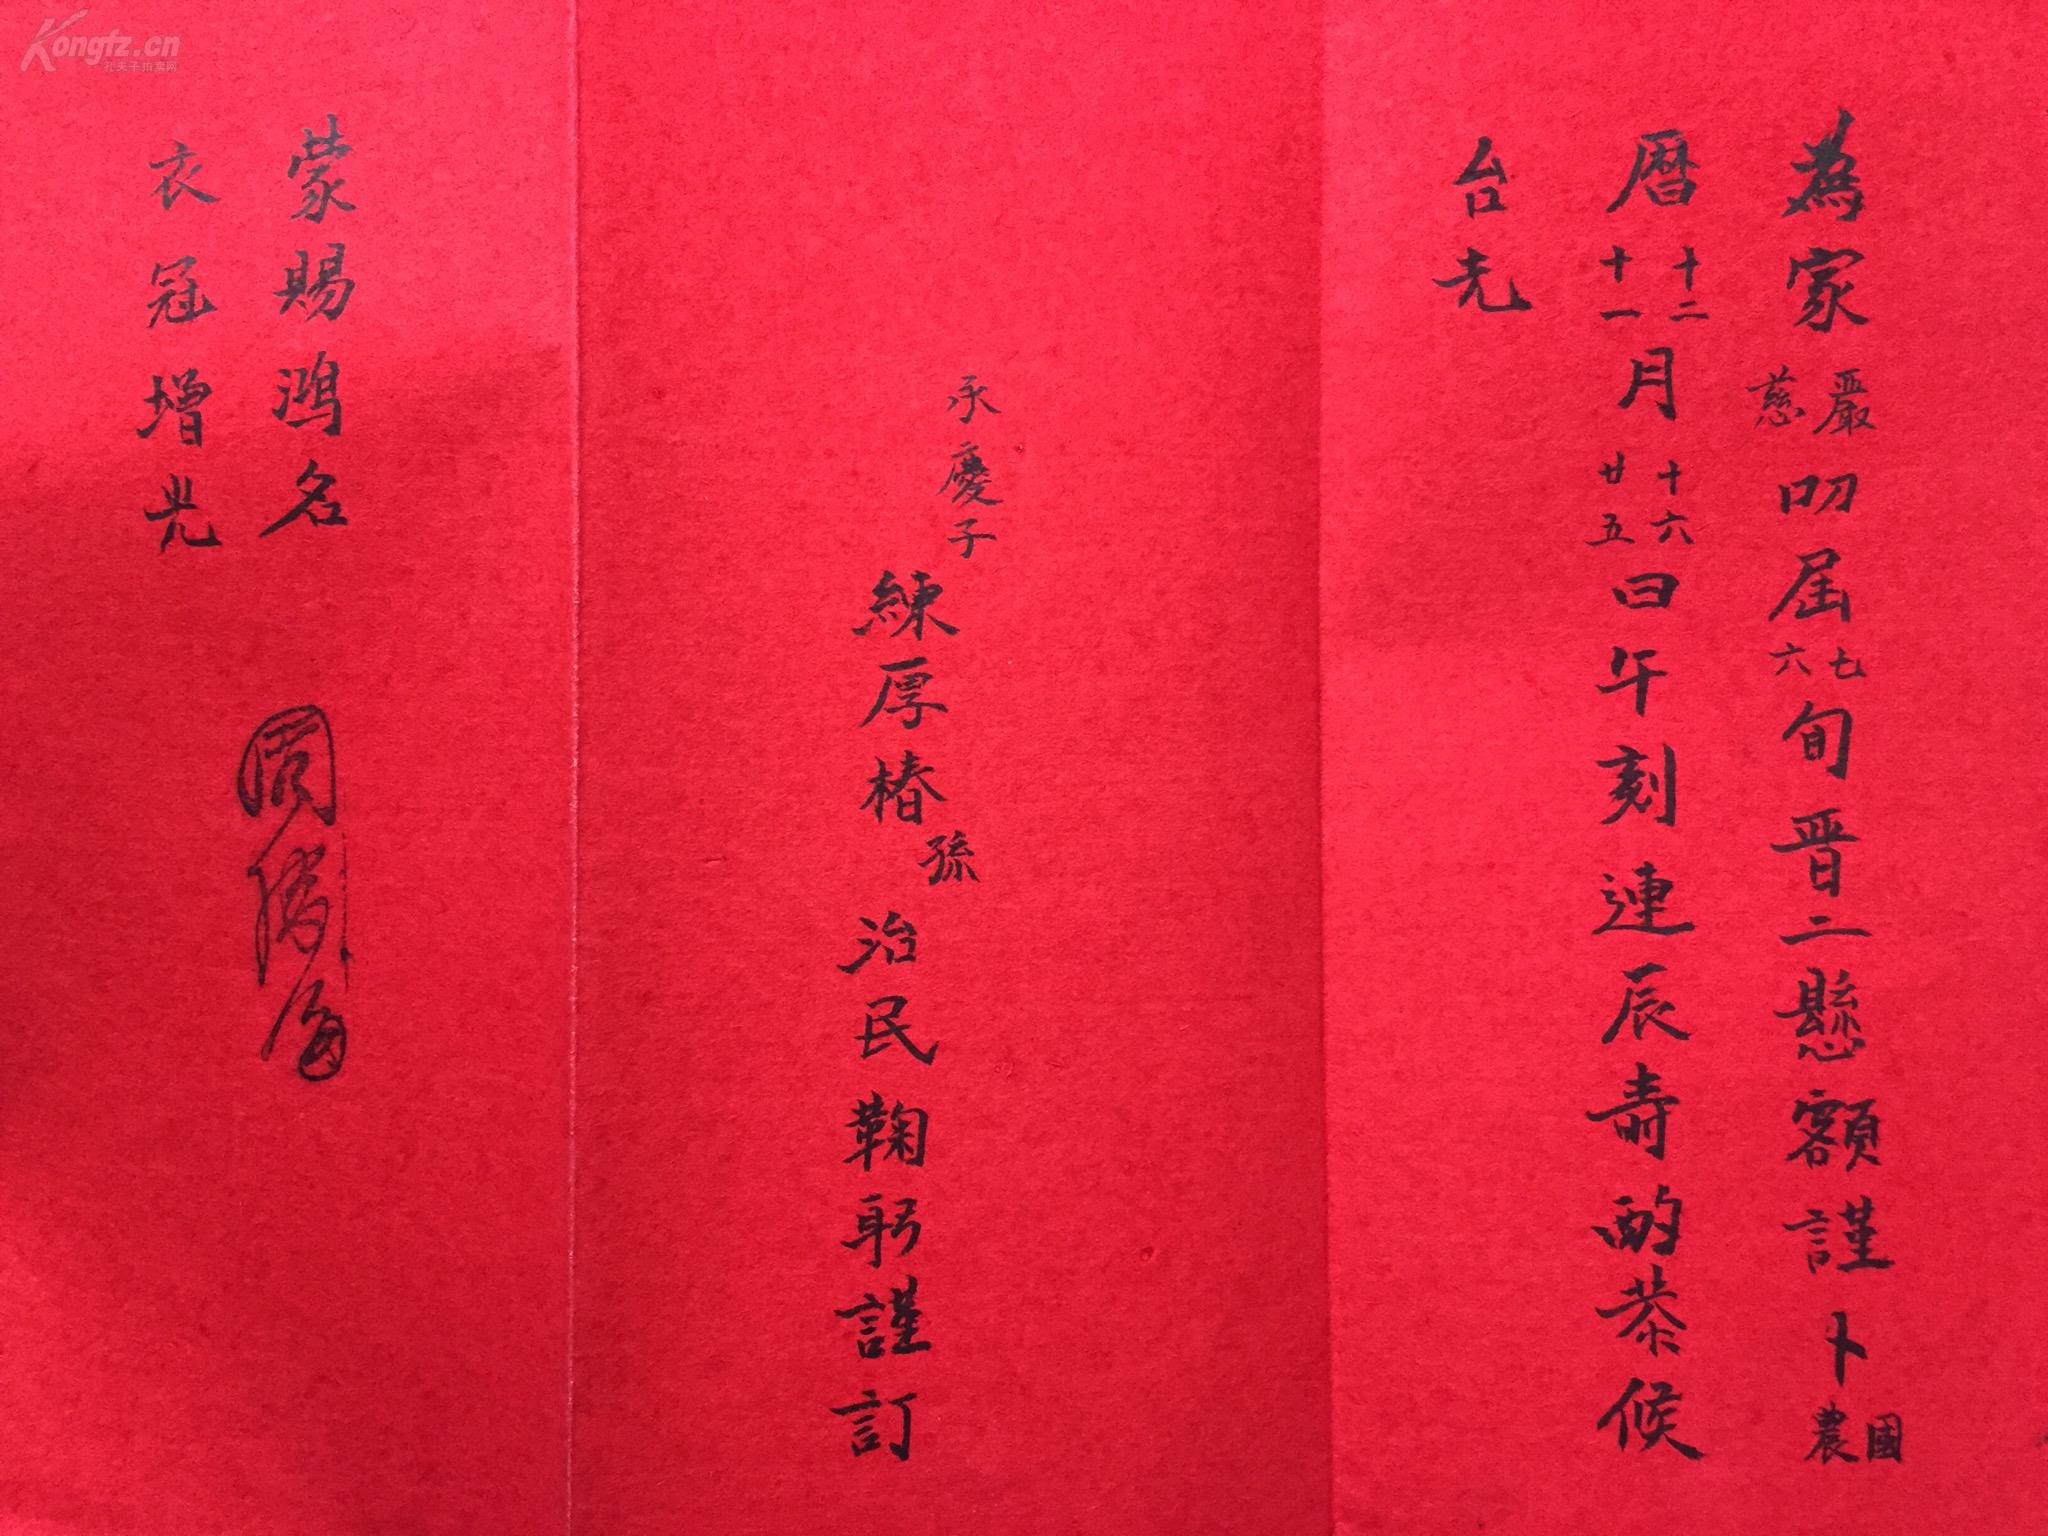 為家嚴慈叨屆七六旬晋二懸額謹卜國農
曆十二十一月十六廿五日午刻連辰壽酌恭候
台光
承慶子
練厚椿孫治民鞠躬謹訂
蒙賜鸿名
衣冠增光
Kongfz.cn
孔夫子拍卖网